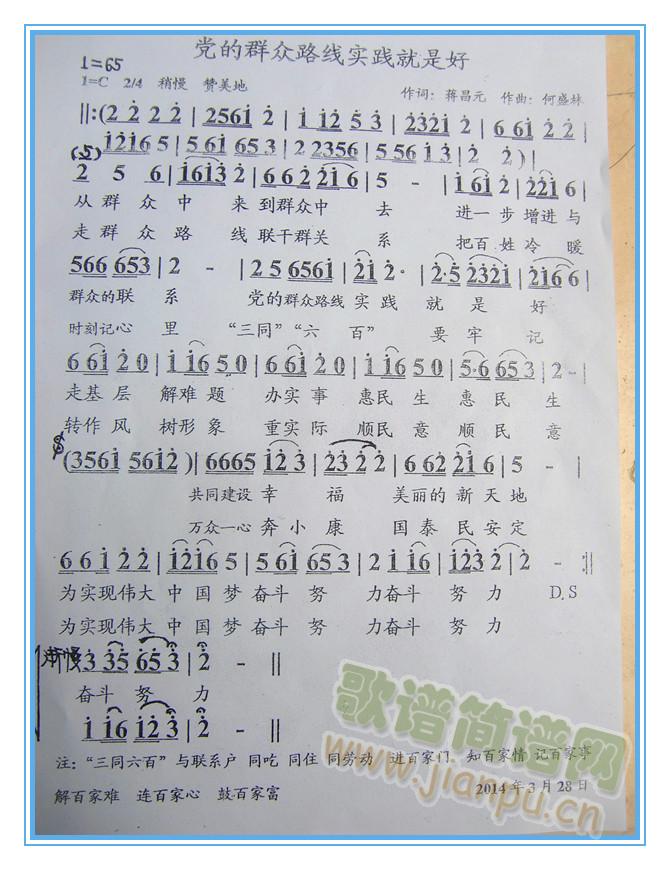 党的群众路线实践就是好
1=65
1=C 2/4 稍慢 赞美地 作词：蒋昌元 作曲：何盛林
‖:(2 2 2 2 | 2561 2 | 1 12 5 3 | 2321 2 | 6 61 2 2 |
1216 5 | 5 61 65 3 | 2 2356 | 5 56 1 3 | 2 2 ) |
(5)
2 5 6 | 1613 2 | 6 62 21 6 | 5 - | 1 61 2 | 221 6 |
从 群 众 中 来 到群众中 去 进一步 增进 与
走 群 众 路 线 联干群关 系 把百姓 冷 暖
566 653 | 2 - | 2 5 5561 | 21 2· | 2·5 2321 | 216 6 |
群众的联 系 党的群众路线 实践 就 是 好
时刻记心 里 “三同”“六 百” 要 牢 记
6 61 2 0 | 1 16 5 0 | 6 61 2 0 | 1 16 5 0 | 5·6 653 | 2 - |
走基 层 解难 题 办实 事 惠民 生 惠 民 生
转作 风 树形 象 重实 际 顺民 意 顺 民 意
(3561 5612 ) | 6665 12 3 | 23 2 2 | 6 62 21 6 | 5 - |
共同建设 幸 福 美丽的 新 天 地
万众一心 奔 小 康 国泰 民 安 定
6 61 2 2 | 1216 5 | 5 61 65 3 | 2 1 16 | 123 2 | 2 - :‖
为实现伟大 中 国 梦 奋斗 努 力奋斗 努 力 D.S
为实现伟大 中 国 梦 奋斗 努 力奋斗 努 力
渐慢 3 35 65 3 | 2 - ‖
奋斗 努 力
1 16 12 3 | 2 - ‖
注：“三同六百”与联系户 同吃 同住 同劳动 进百家门 知百家情 记百家事
解百家难 连百家心 鼓百家富 2014年3月28日
歌谱简谱网
www.jianpu.cn